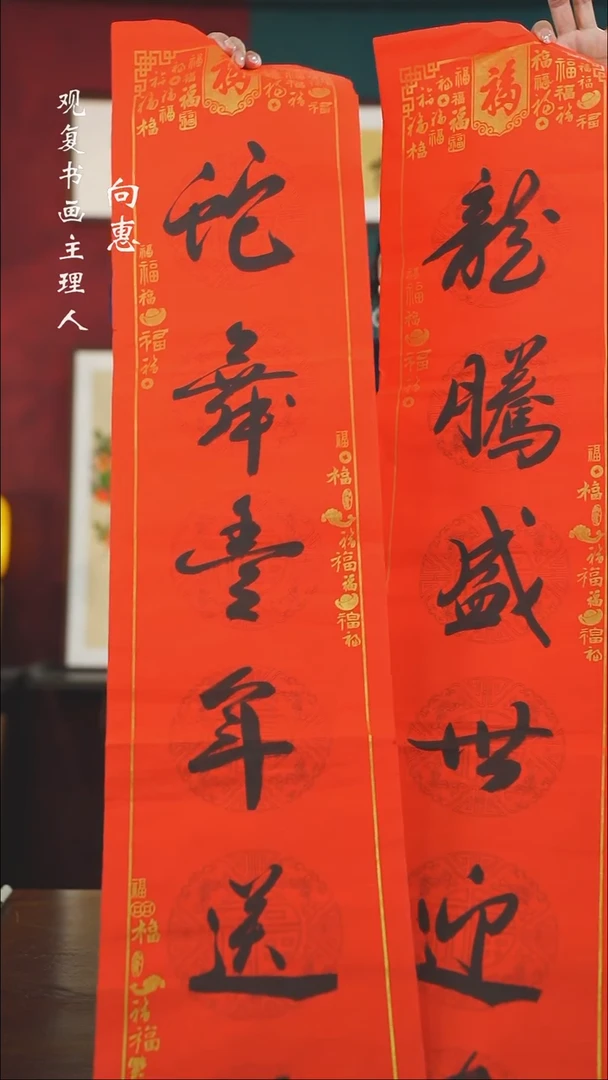 观复书画主理人
向惠
龍騰盛世迎
蛇舞豊年送
福
福